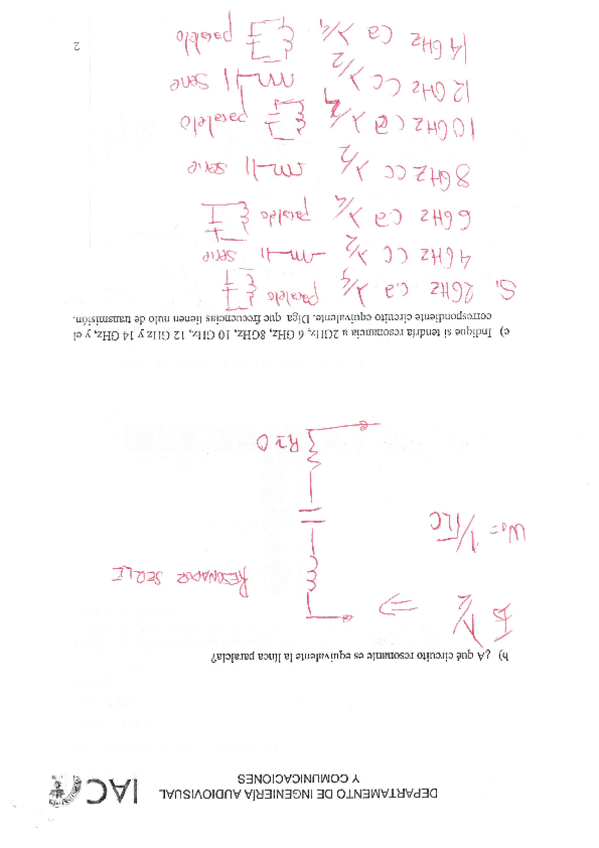 DEPARTAMENTO DE INGENIERÍA AUDIOVISUAL
Y COMUNICACIONES
IAC
b) ¿A qué circuito resonante es equivalente la línea paralela?
Es λ/2 ⇒
RESONADOR SERIE
W₀ = 1/√LC
R≥0
c) Indique si tendría resonancia a 2GHz, 6 GHz, 8GHz, 10 GHz, 12 GHz y 14 GHz, y el
correspondiente circuito equivalente. Diga que frecuencias tienen nulo de transmisión.
Si 2GHz c.a λ/4 paralelo
4GHz CC λ/2 serie
6GHz C.a λ/4 paralelo
8GHz CC λ/2 serie
10GHz Ca λ/4 paralelo
12GHz CC λ/2 serie
14GHz Ca λ/4 paralelo
2